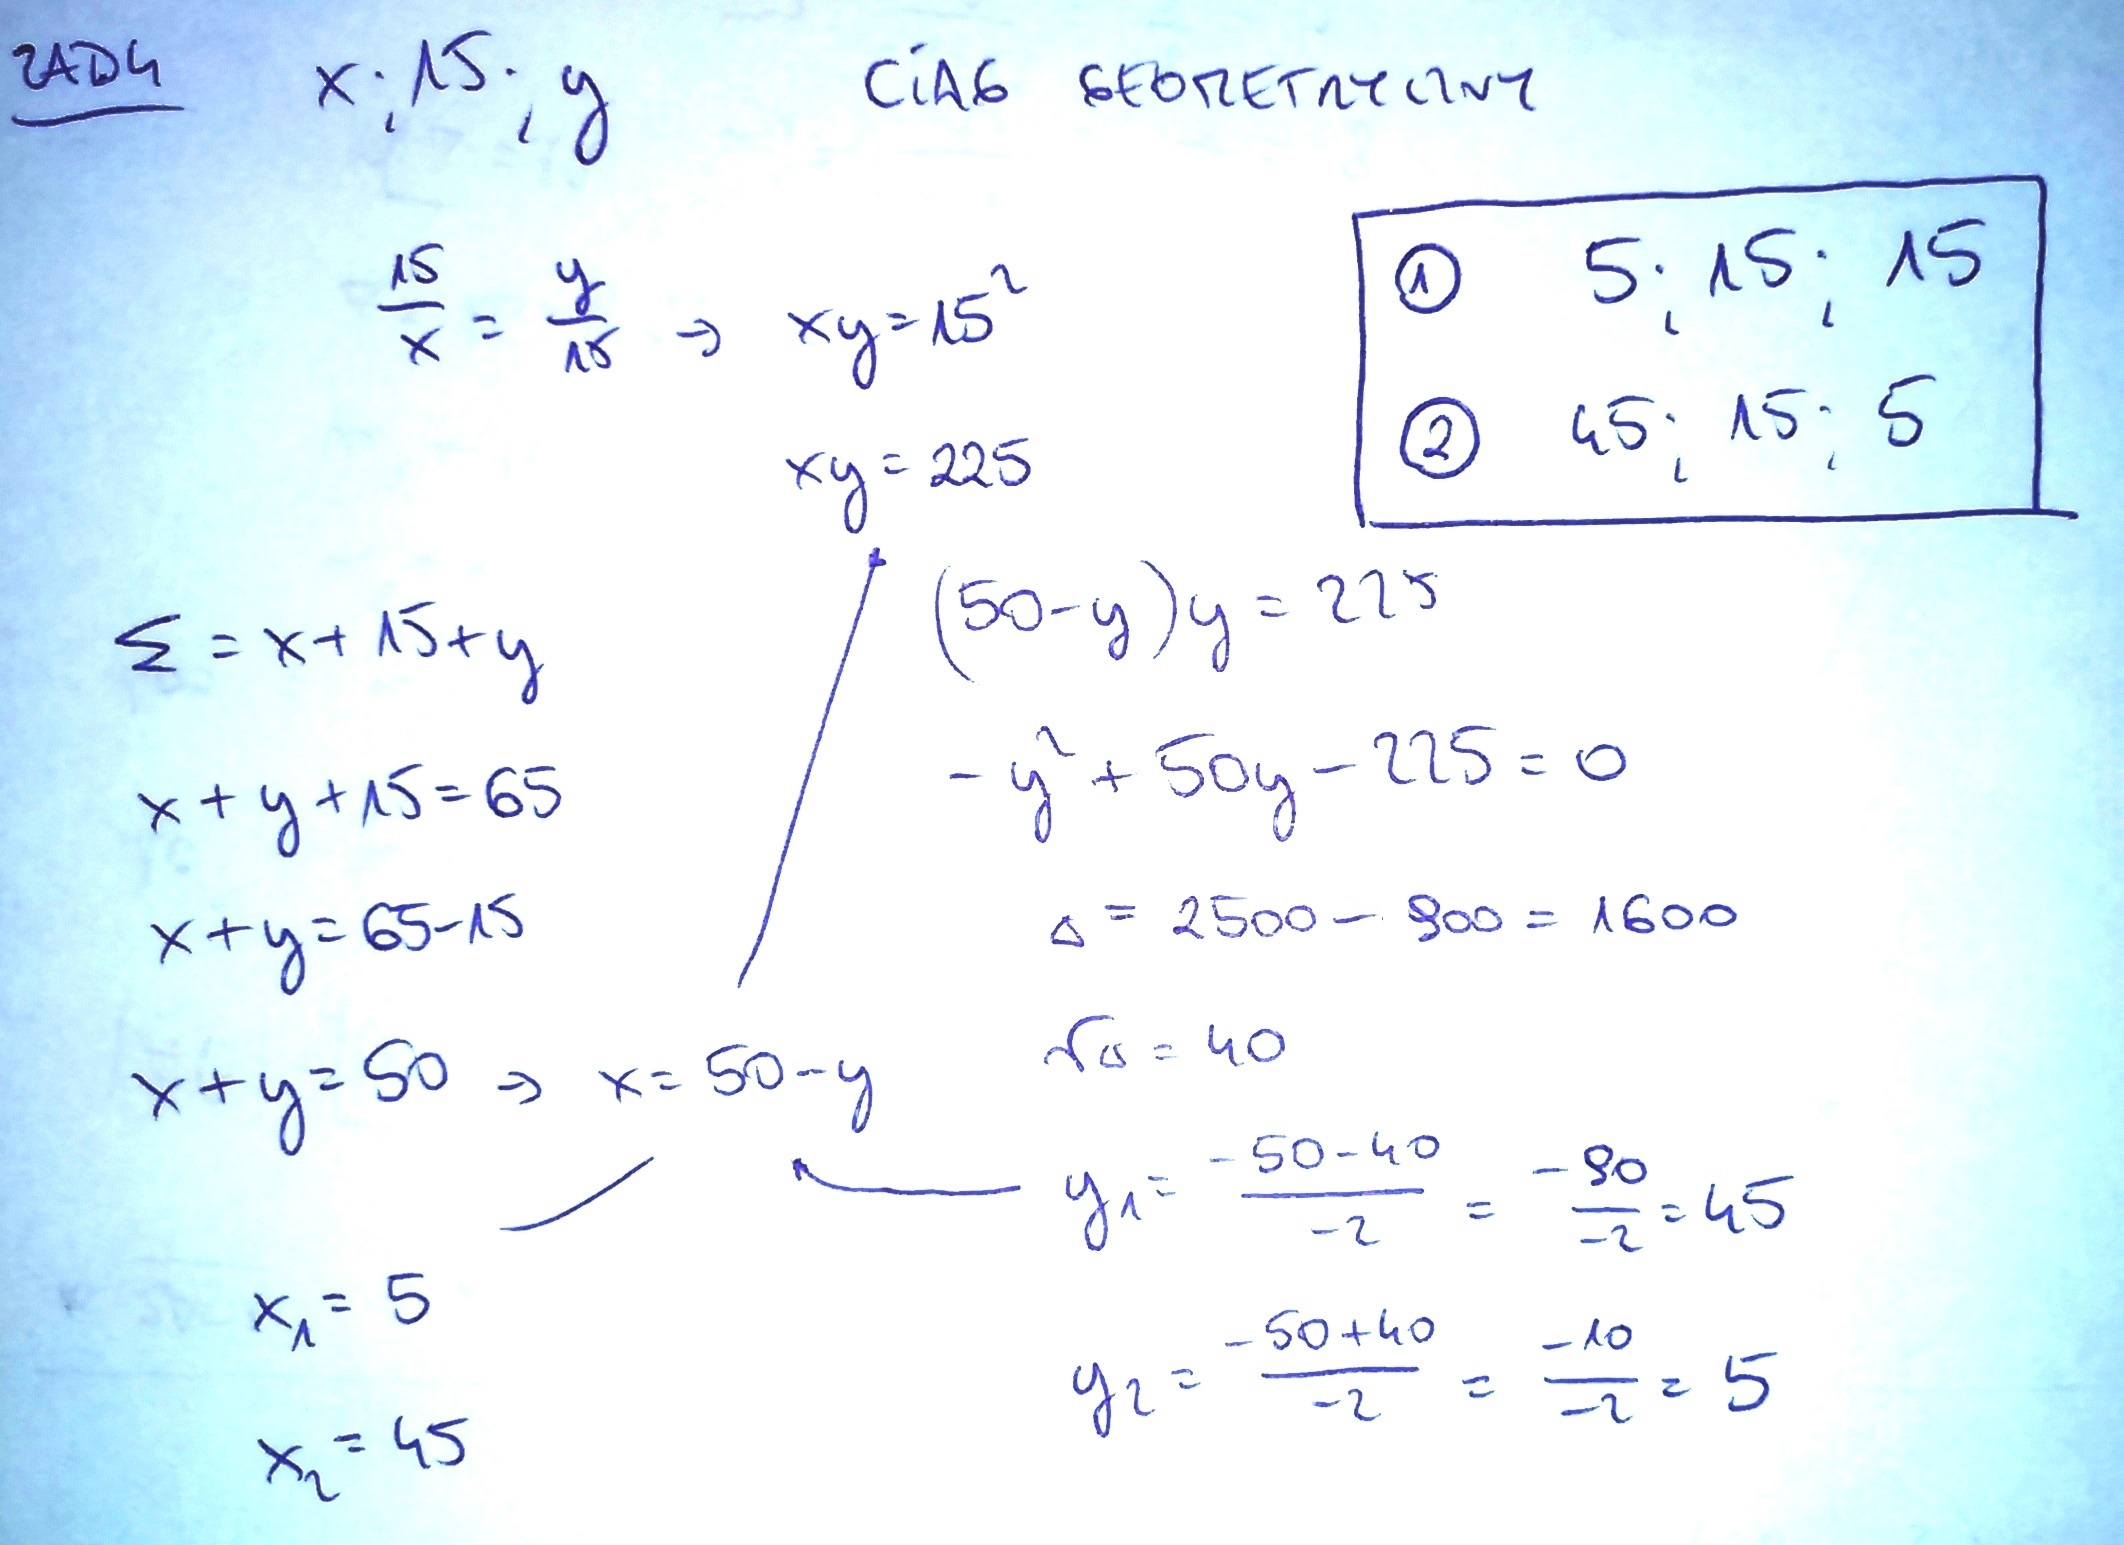 ZAD4 x; 15; y CIĄG GEOMETRYCZNY
15/x = y/15 → xy = 15²
xy = 225
① 5; 15; 15
② 45; 15; 5
Σ = x + 15 + y
x + y + 15 = 65
x + y = 65 - 15
x + y = 50 → x = 50 - y
x₁ = 5
x₂ = 45
(50 - y) y = 225
- y² + 50y - 225 = 0
Δ = 2500 - 900 = 1600
√Δ = 40
y₁ = (-50 - 40)/-2 = -90/-2 = 45
y₂ = (-50 + 40)/-2 = -10/-2 = 5